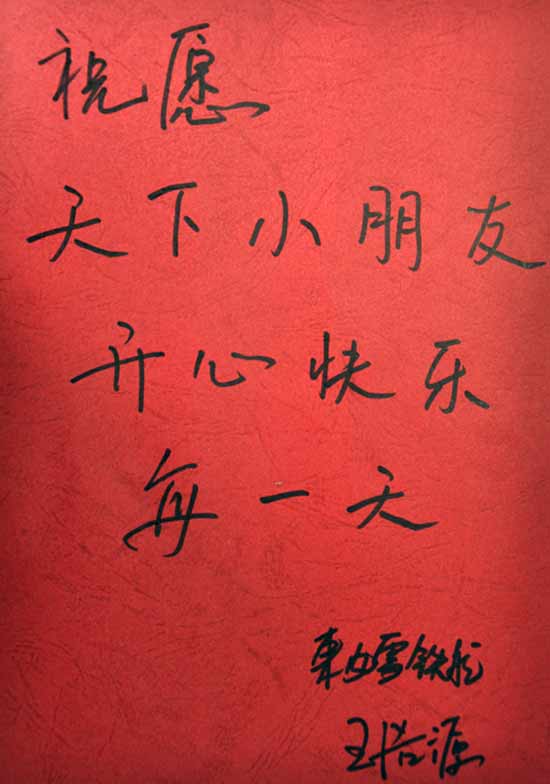 祝愿
天下小朋友
开心快乐
每一天
東风雪铁龙